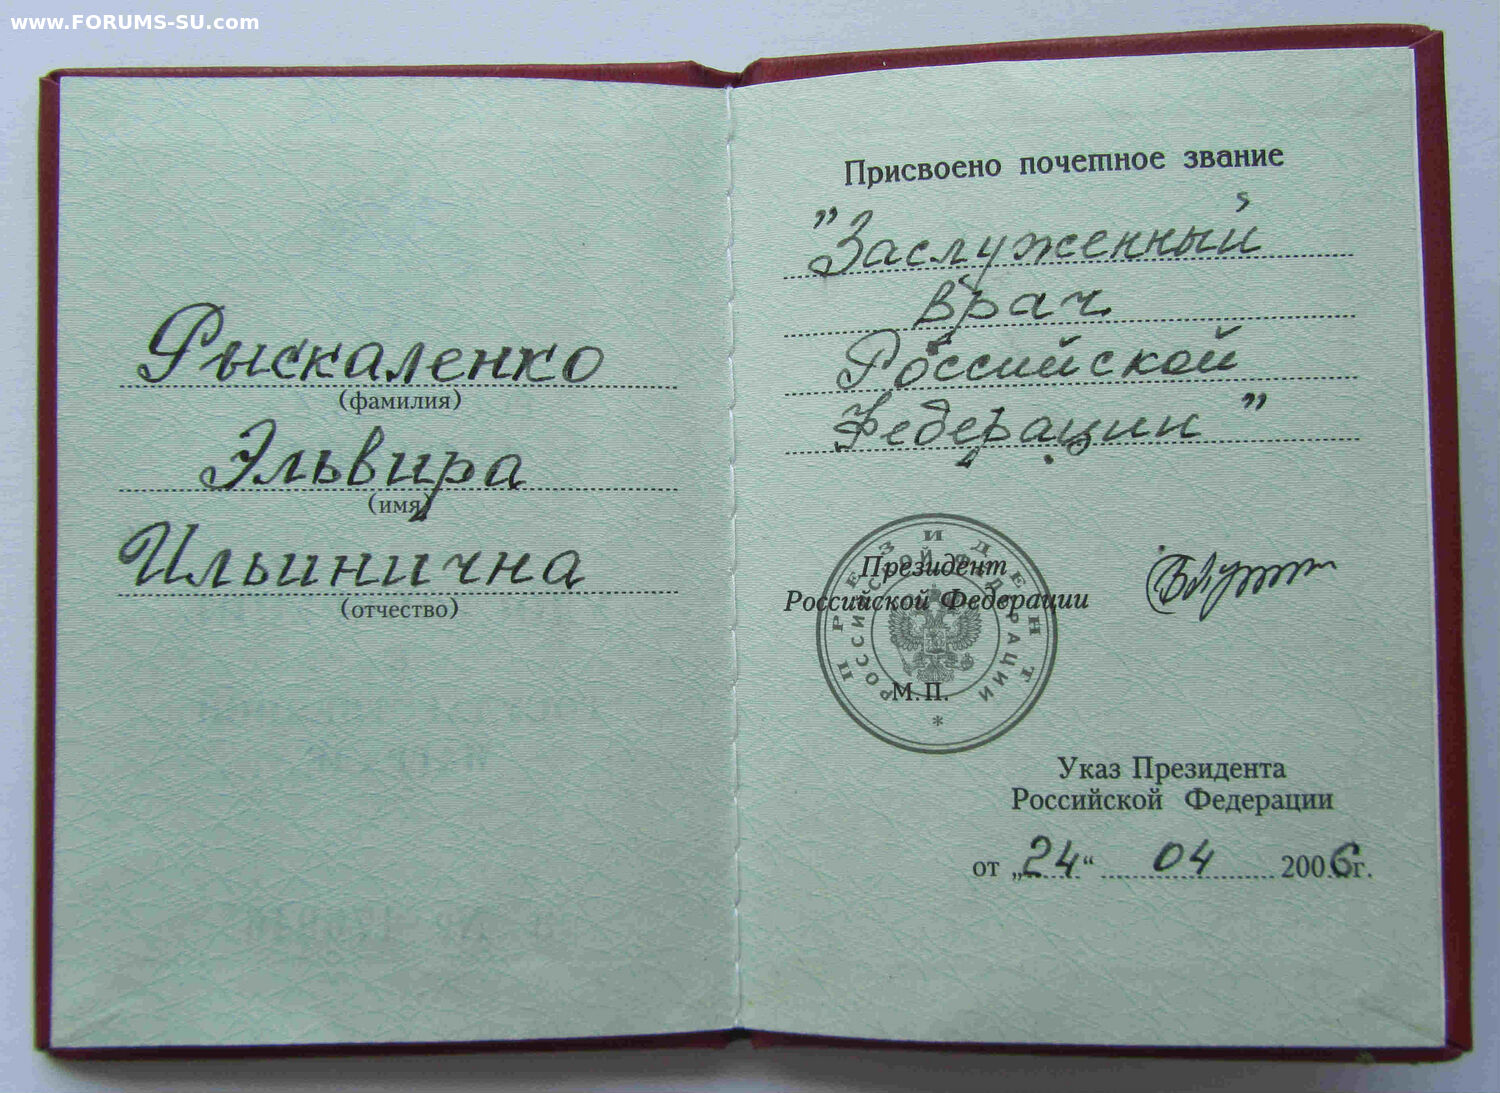 www.FORUMS-SU.com
Рыскаленко
(фамилия)
Эльвира
(имя)
Ильинична
(отчество)
Присвоено почетное звание
"Заслуженный
врач
Российской
Федерации"
Президент
Российской Федерации
ПРЕЗИДЕНТ
РОССИЙСКОЙ ФЕДЕРАЦИИ
М.П.
*
Указ Президента
Российской Федерации
от „24“ 04 2006г.